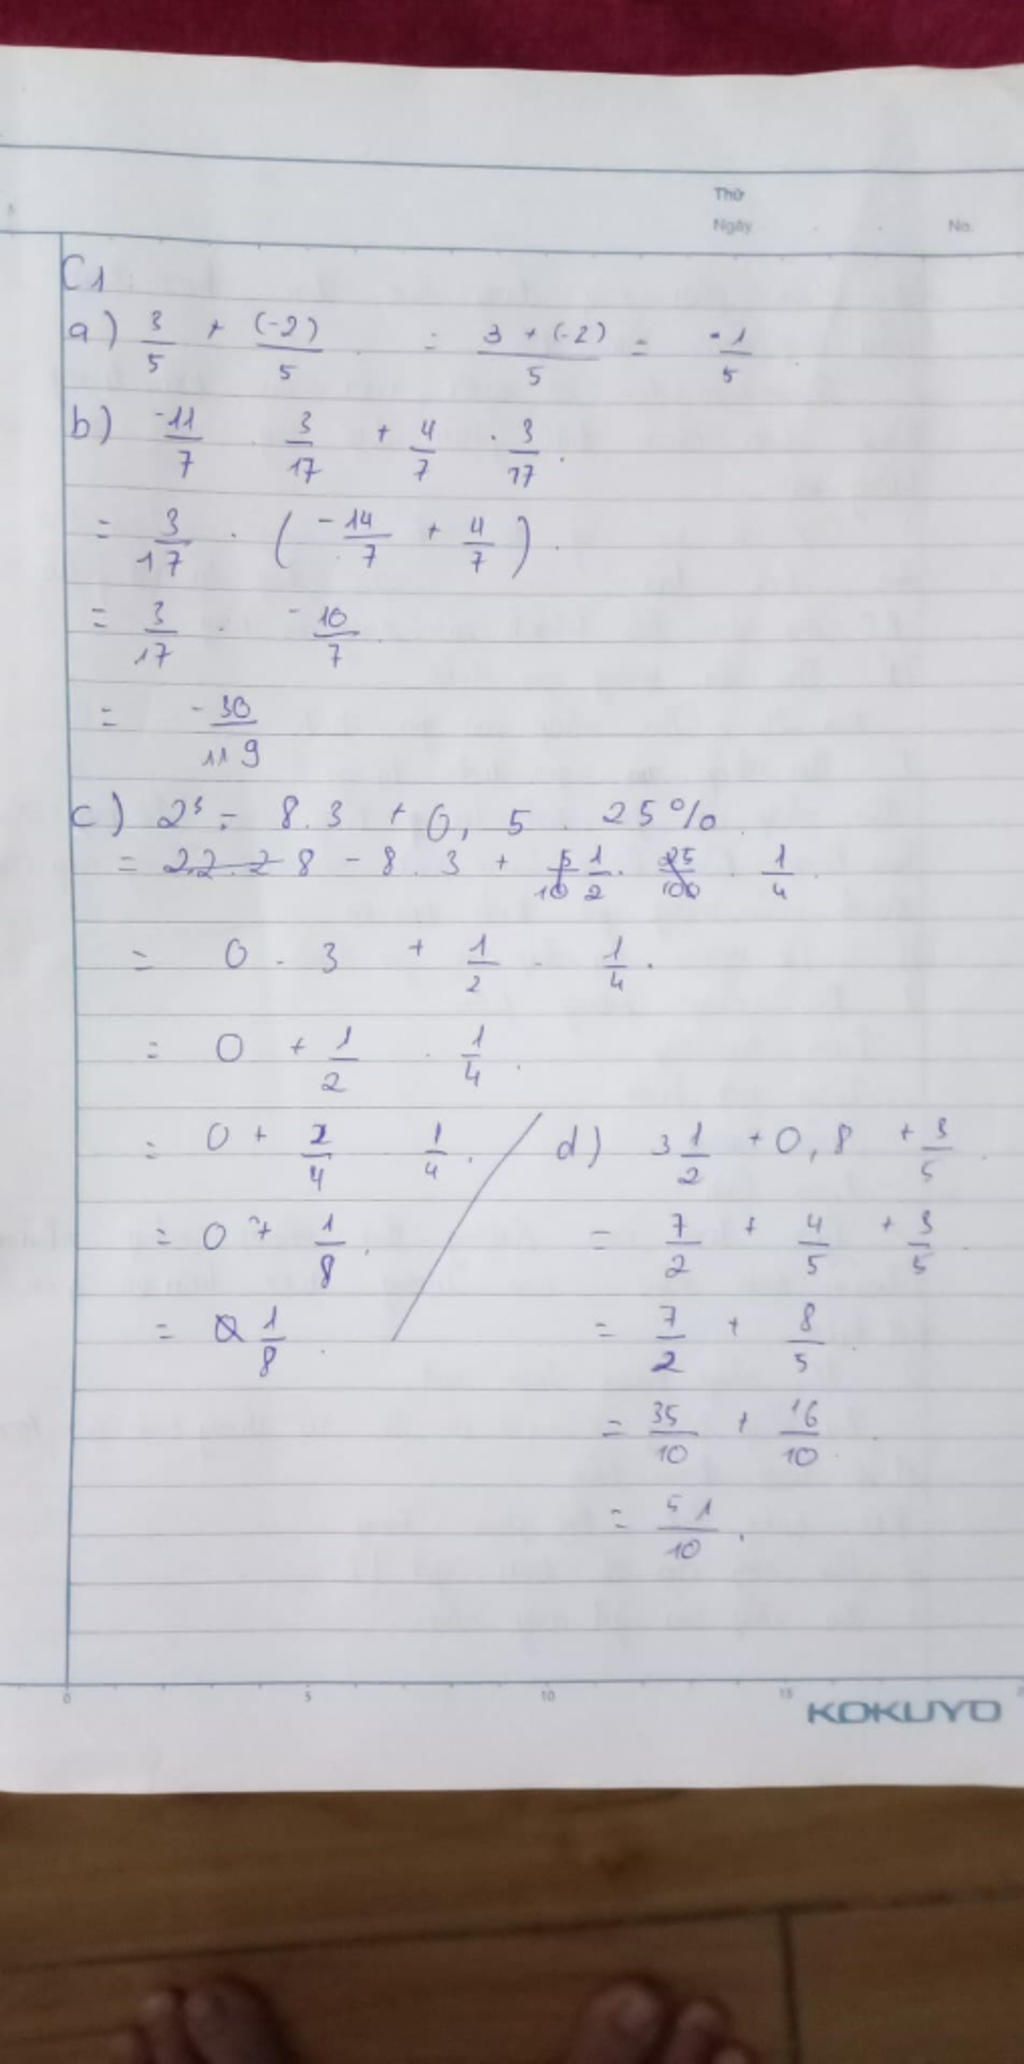 Thứ
Ngày No.
C1
a) 3/5 + (-2)/5 = 3 + (-2)/5 = -1/5
b) -11/7 . 3/17 + 4/7 . 3/17 .
= 3/17 . ( -14/7 + 4/7 ) .
= 3/17 . -10/7
= -30/119
c) 2³ - 8.3 + 0,5 . 25%
= 2.2.2 8 - 8.3 + 5/10 1/2 . 25/100 . 1/4
= 0 . 3 + 1/2 . 1/4 .
= 0 + 1/2 . 1/4 .
= 0 + 2/4 1/4 .
= 0 + 1/8 .
= 1/8 .
d) 3 1/2 + 0,8 + 3/5
= 7/2 + 4/5 + 3/5
= 7/2 + 8/5
= 35/10 + 16/10
= 51/10 .
0 5 10 15
KOKUYO